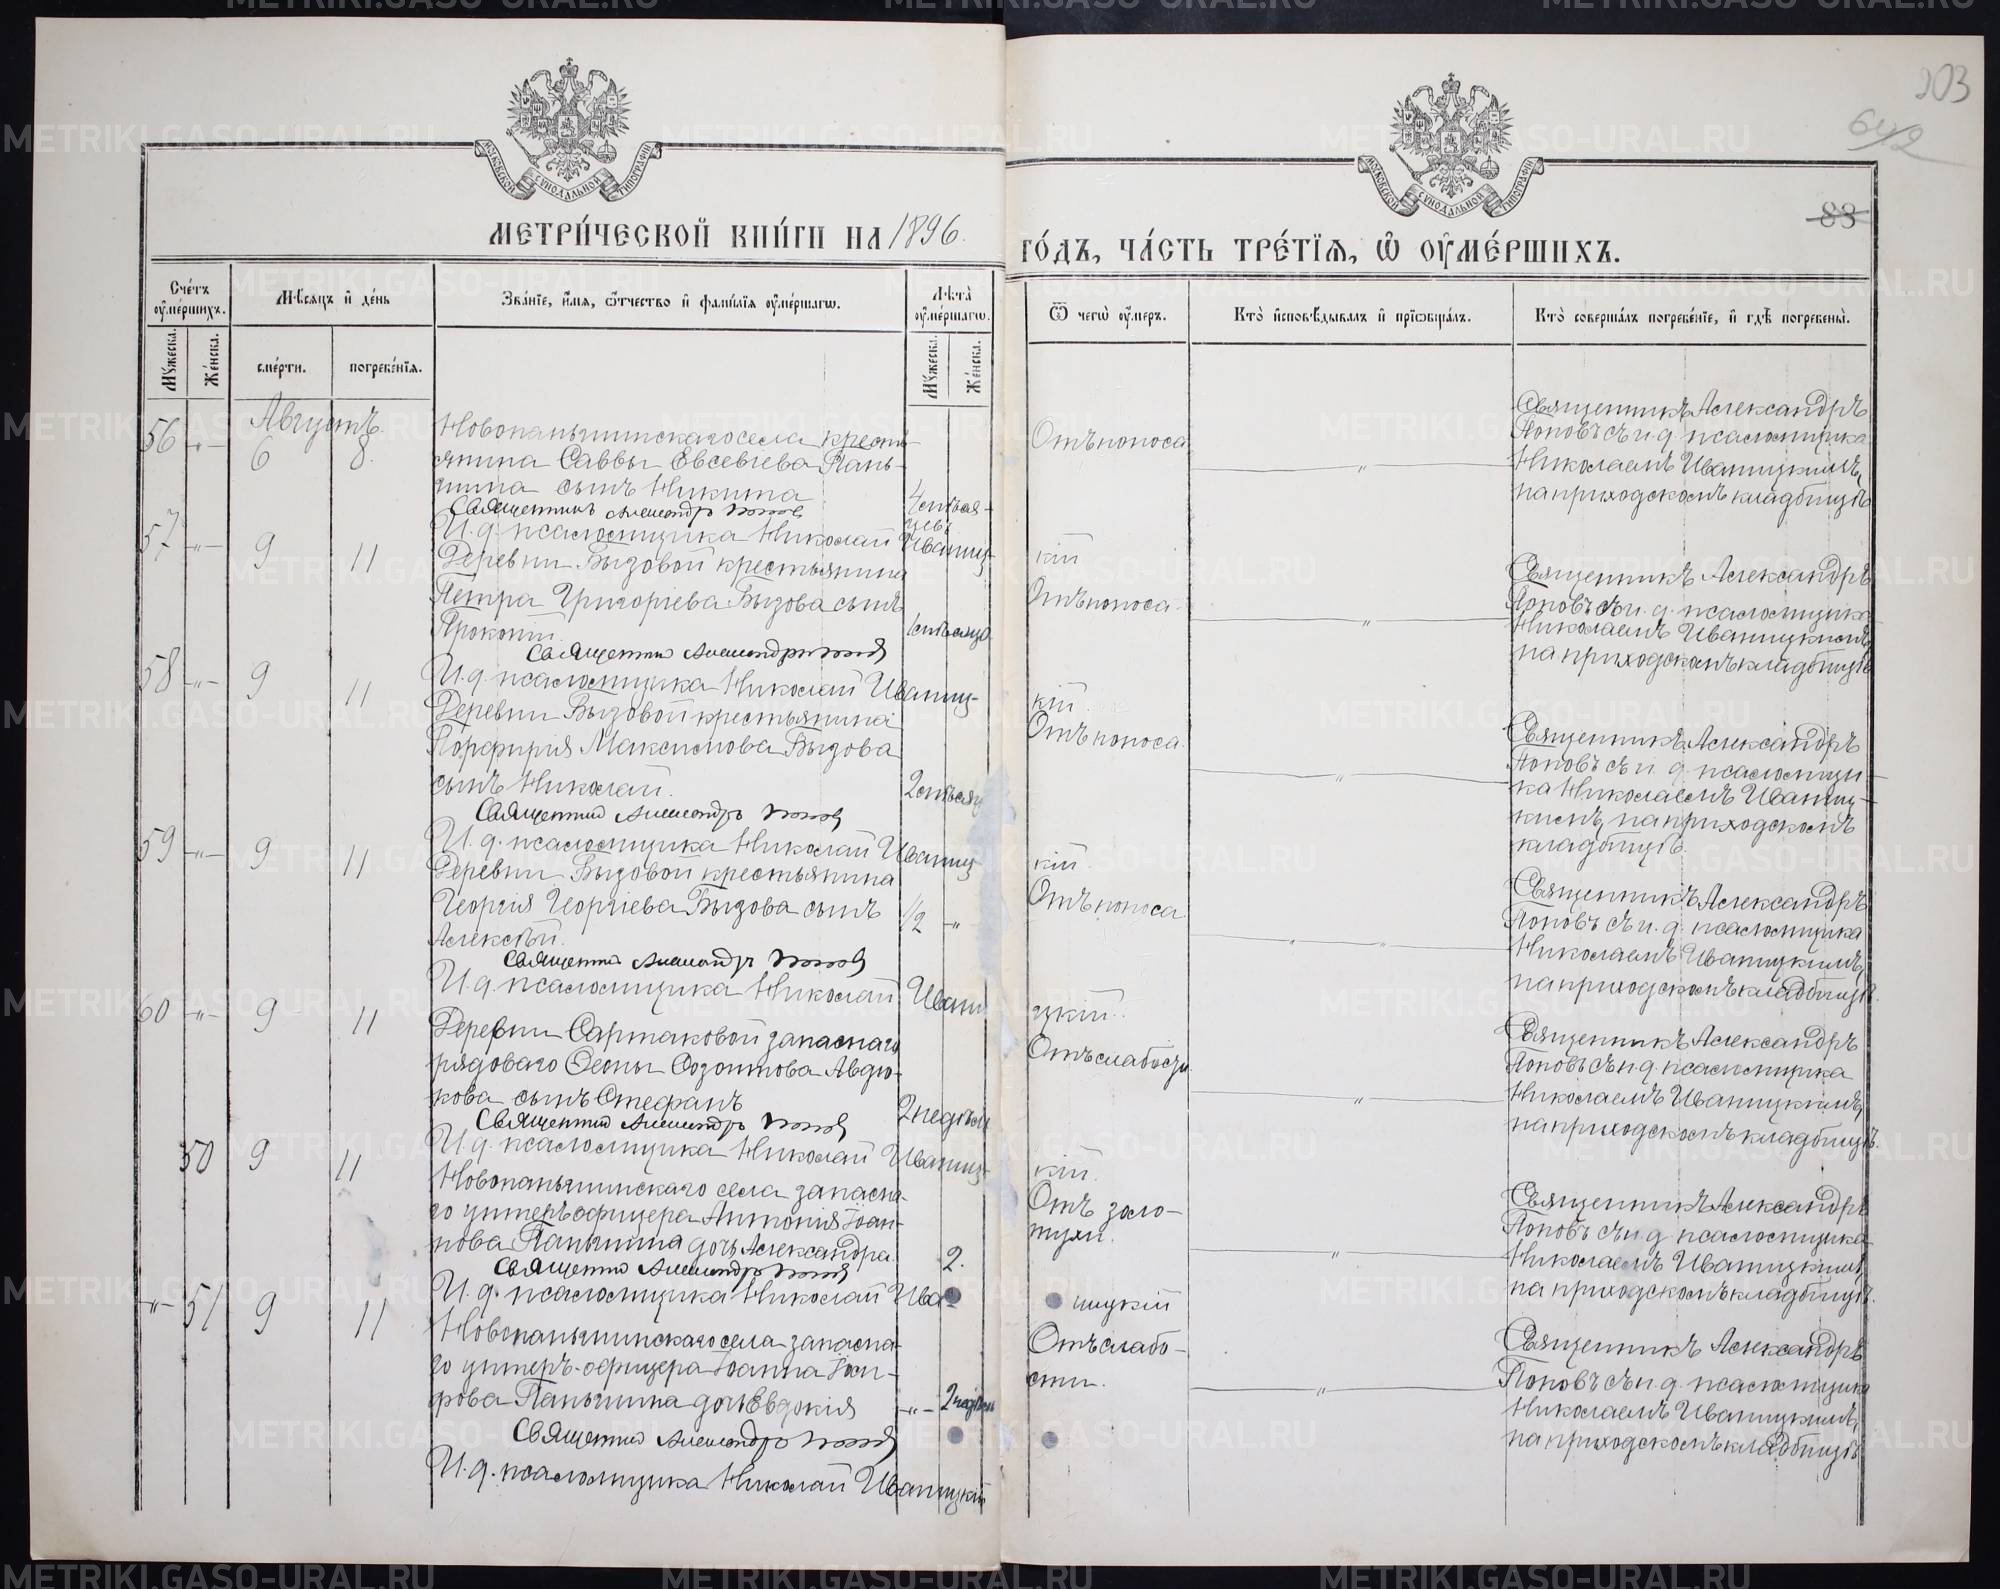 203
642
88
МОСКОВСКОЙ СѴНОДАЛЬНОЙ ТИПОГРАФІИ
МОСКОВСКОЙ СѴНОДАЛЬНОЙ ТИПОГРАФІИ
МЕТРИ́ЧЕСКОЙ КНИ́ГИ НА 1896.
ГО́ДЪ, ЧА́СТЬ ТРЕ́ТЇѦ, Ѡ҆ ОУ҆МЕ́РШИХЪ.
Сче́тъ оу҆ме́ршихъ.
Мѣ́сѧцъ и҆ де́нь
Зва́нїе, и҆́мѧ, ѻ҆́тчество и҆ фами́лїѧ оу҆ме́ршагѡ.
Лѣ́та оу҆ме́ршагѡ.
Ѿ чегѡ̀ оу҆́меръ.
Кто̀ и҆сповѣ́дывалъ и҆ прїѡбща́лъ.
Кто̀ соверша́лъ погребе́нїе, и҆ гдѣ̀ погребены̀.
Мꙋ́жеска.
Же́нска.
сме́рти.
погребе́нїѧ.
Мꙋ́жеска.
Же́нска.
Августъ.
56 -"- 6 8.
Новопаньшинскаго села кресть-
янина Саввы Евсевіева Пань-
шина сынъ Никита
4 мѣся-
цевъ
Отъ поноса
"
Священникъ Александръ
Поповъ съ и. д. псаломщика
Николаемъ Иваницкимъ,
на приходскомъ кладбищѣ
Священникъ Александръ Поповъ
И. д. псаломщика Николай Иваниц-
кій
57 -"- 9 11
Деревни Бызовой крестьянина
Петра Григоріева Бызова сынъ
Прокопій.
1 мѣсяцъ
Отъ поноса.
"
Священникъ Александръ
Поповъ съ и. д. псаломщика
Николаемъ Иваницкимъ,
на приходскомъ кладбищѣ
Священникъ Александръ Поповъ
И. д. псаломщика Николай Иваниц-
кій.
58 -"- 9 11
Деревни Бызовой крестьянина
Порфирія Максимова Бызова
сынъ Николай.
2 мѣсяц
Отъ поноса.
"
Священникъ Александръ
Поповъ съ и. д. псаломщи-
ка Николаемъ Иваниц-
кимъ, на приходскомъ
кладбищѣ.
Священникъ Александръ Поповъ
И. д. псаломщика Николай Иваниц
кій.
59 -"- 9 11
Деревни Бызовой крестьянина
Георгія Георгіева Бызова сынъ
Алексѣй.
1/2 -"
Отъ поноса.
" "
Священникъ Александръ
Поповъ съ и. д. псаломщика
Николаемъ Иваницкимъ,
на приходскомъ кладбищѣ.
Священникъ Александръ Поповъ
И. д. псаломщика Николай Ивани
цкій.
60 -"- 9 11
Деревни Сартаковой запаснаго
рядоваго Ѳеоны Созонтова Авдю-
кова сынъ Стефанъ
2 недѣли
Отъ слабости.
"
Священникъ Александръ
Поповъ съ и. д. псаломщика
Николаемъ Иваницкимъ,
на приходскомъ кладбищѣ.
Священникъ Александръ Поповъ
И. д. псаломщика Николай Иваниц-
кій.
50 9 11
Новопаньшинскаго села запасна-
го унтеръ офицера Антонія Іоан-
нова Паньшина дочь Александра.
2.
Отъ золо-
тухи.
"
Священникъ Александръ
Поповъ съ и. д. псаломщика
Николаемъ Иваницкимъ,
на приходскомъ кладбищѣ.
Священникъ Александръ Поповъ
И. д. псаломщика Николай Ива-
ницкій
-"- 51 9 11
Новопаньшинскаго села запасна-
го унтеръ-офицера Іоанна Іоси-
фова Паньшина дочь Евдокія
-"- 2 недѣли
Отъ слабо-
сти.
"
Священникъ Александръ
Поповъ съ и. д. псаломщика
Николаемъ Иваницкимъ,
на приходскомъ кладбищѣ
Священникъ Александръ Поповъ
И. д. псаломщика Николай Иваницкій
METRIKI.GASO-URAL.RU